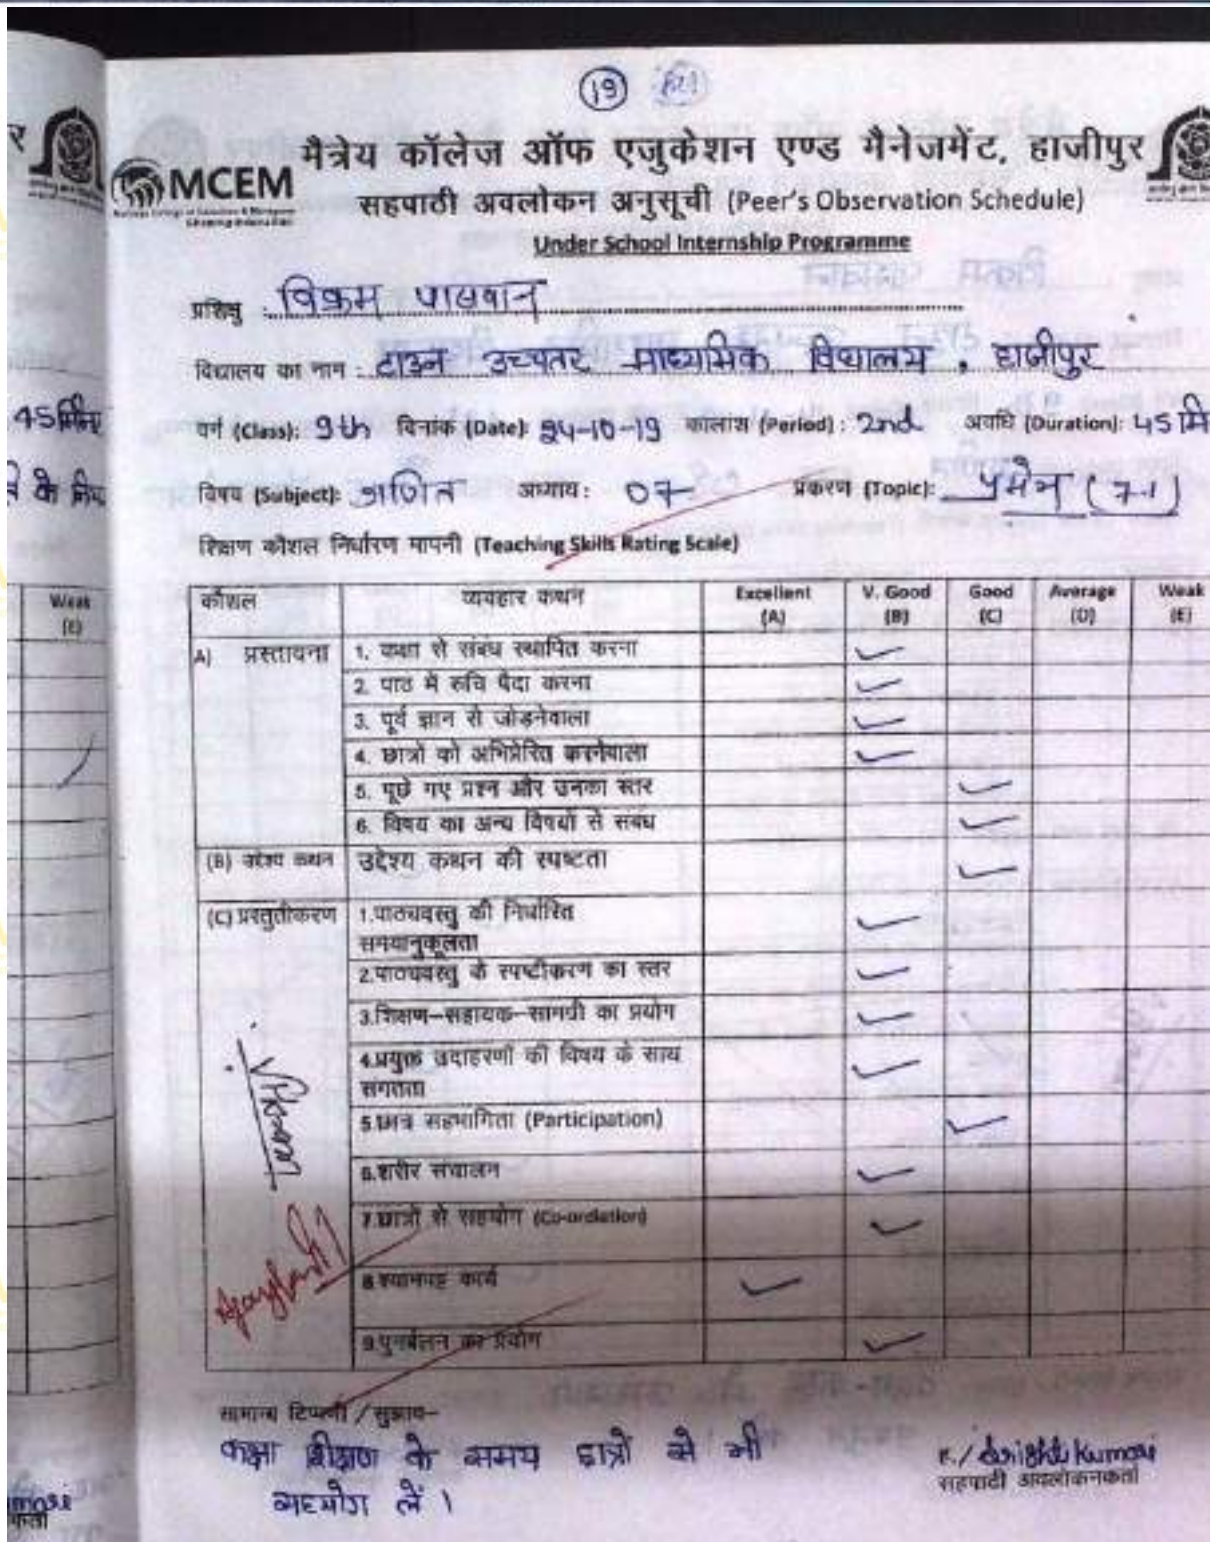 19
मैत्रेय कॉलेज ऑफ एजुकेशन एण्ड मैनेजमेंट, हाजीपुर
MCEM
सहपाठी अवलोकन अनुसूची (Peer's Observation Schedule)
Under School Internship Programme
प्रशिक्षु : विक्रम पासवान
विद्यालय का नाम : टाउन उच्चतर माध्यमिक विद्यालय, हाजीपुर
वर्ग (Class): 9th दिनांक (Date): 24-10-19 कालांश (Period): 2nd अवधि (Duration): 45 मि
विषय (Subject): गणित अध्याय: 07 प्रकरण (Topic): प्रमेय (7.1)
शिक्षण कौशल निर्धारण मापनी (Teaching Skills Rating Scale)
कौशल व्यवहार कथन Excellent (A) V. Good (B) Good (C) Average (D) Weak (E)
A) प्रस्तावना 1. कक्षा से संबंध स्थापित करना
2. पाठ में रुचि पैदा करना
3. पूर्व ज्ञान से जोड़नेवाला
4. छात्रों को अभिप्रेरित करनेवाला
5. पूछे गए प्रश्न और उनका स्तर
6. विषय का अन्य विषयों से संबंध
(B) उद्देश्य कथन उद्देश्य कथन की स्पष्टता
(C) प्रस्तुतीकरण 1.पाठ्यवस्तु की निर्धारित
समयानुकूलता
2.पाठ्यवस्तु के स्पष्टीकरण का स्तर
3.शिक्षण–सहायक–सामग्री का प्रयोग
4.प्रयुक्त उदाहरणों की विषय के साथ
संगतता
5.छात्र सहभागिता (Participation)
6.शरीर संचालन
7.छात्रों से सहयोग (Co-ordiation)
8.श्यामपट्ट कार्य
9.पुनर्बलन का प्रयोग
सामान्य टिप्पणी / सुझाव–
कक्षा शिक्षण के समय छात्रों से भी
सहयोग लें।
Kumari
सहपाठी अवलोकनकर्ता
45 मिनट
Weak
(E)